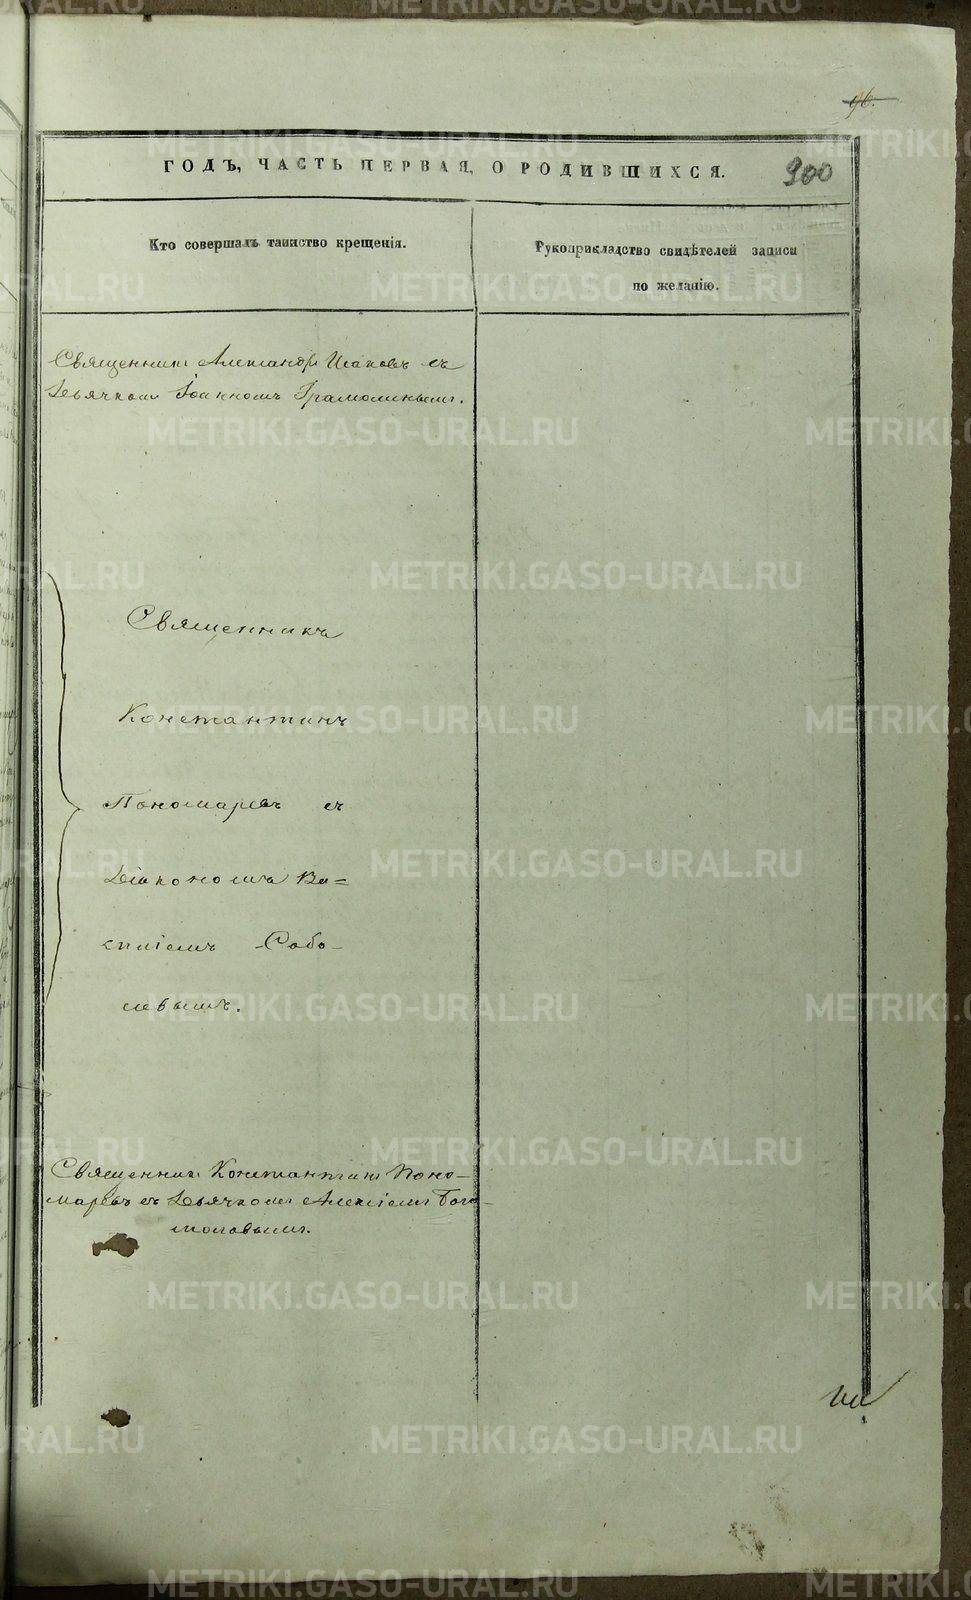 96.
ГОДЪ, ЧАСТЬ ПЕРВАЯ, О РОДИВШИХСЯ. 900
Кто совершалъ таинство крещенія.
Рукоприкладство свидѣтелей записи
по желанію.
Священникъ Александръ Исаковъ съ
Дьячкомъ Іоанномъ Грамолинымъ.
Священникъ
Константинъ
Пономаревъ съ
Діакономъ Ва=
силіемъ Собо-
левымъ.
Священникъ Константинъ Поно-
маревъ съ Дьячкомъ Алексіемъ Бого-
моловымъ.
METRIKI.GASO-URAL.RU